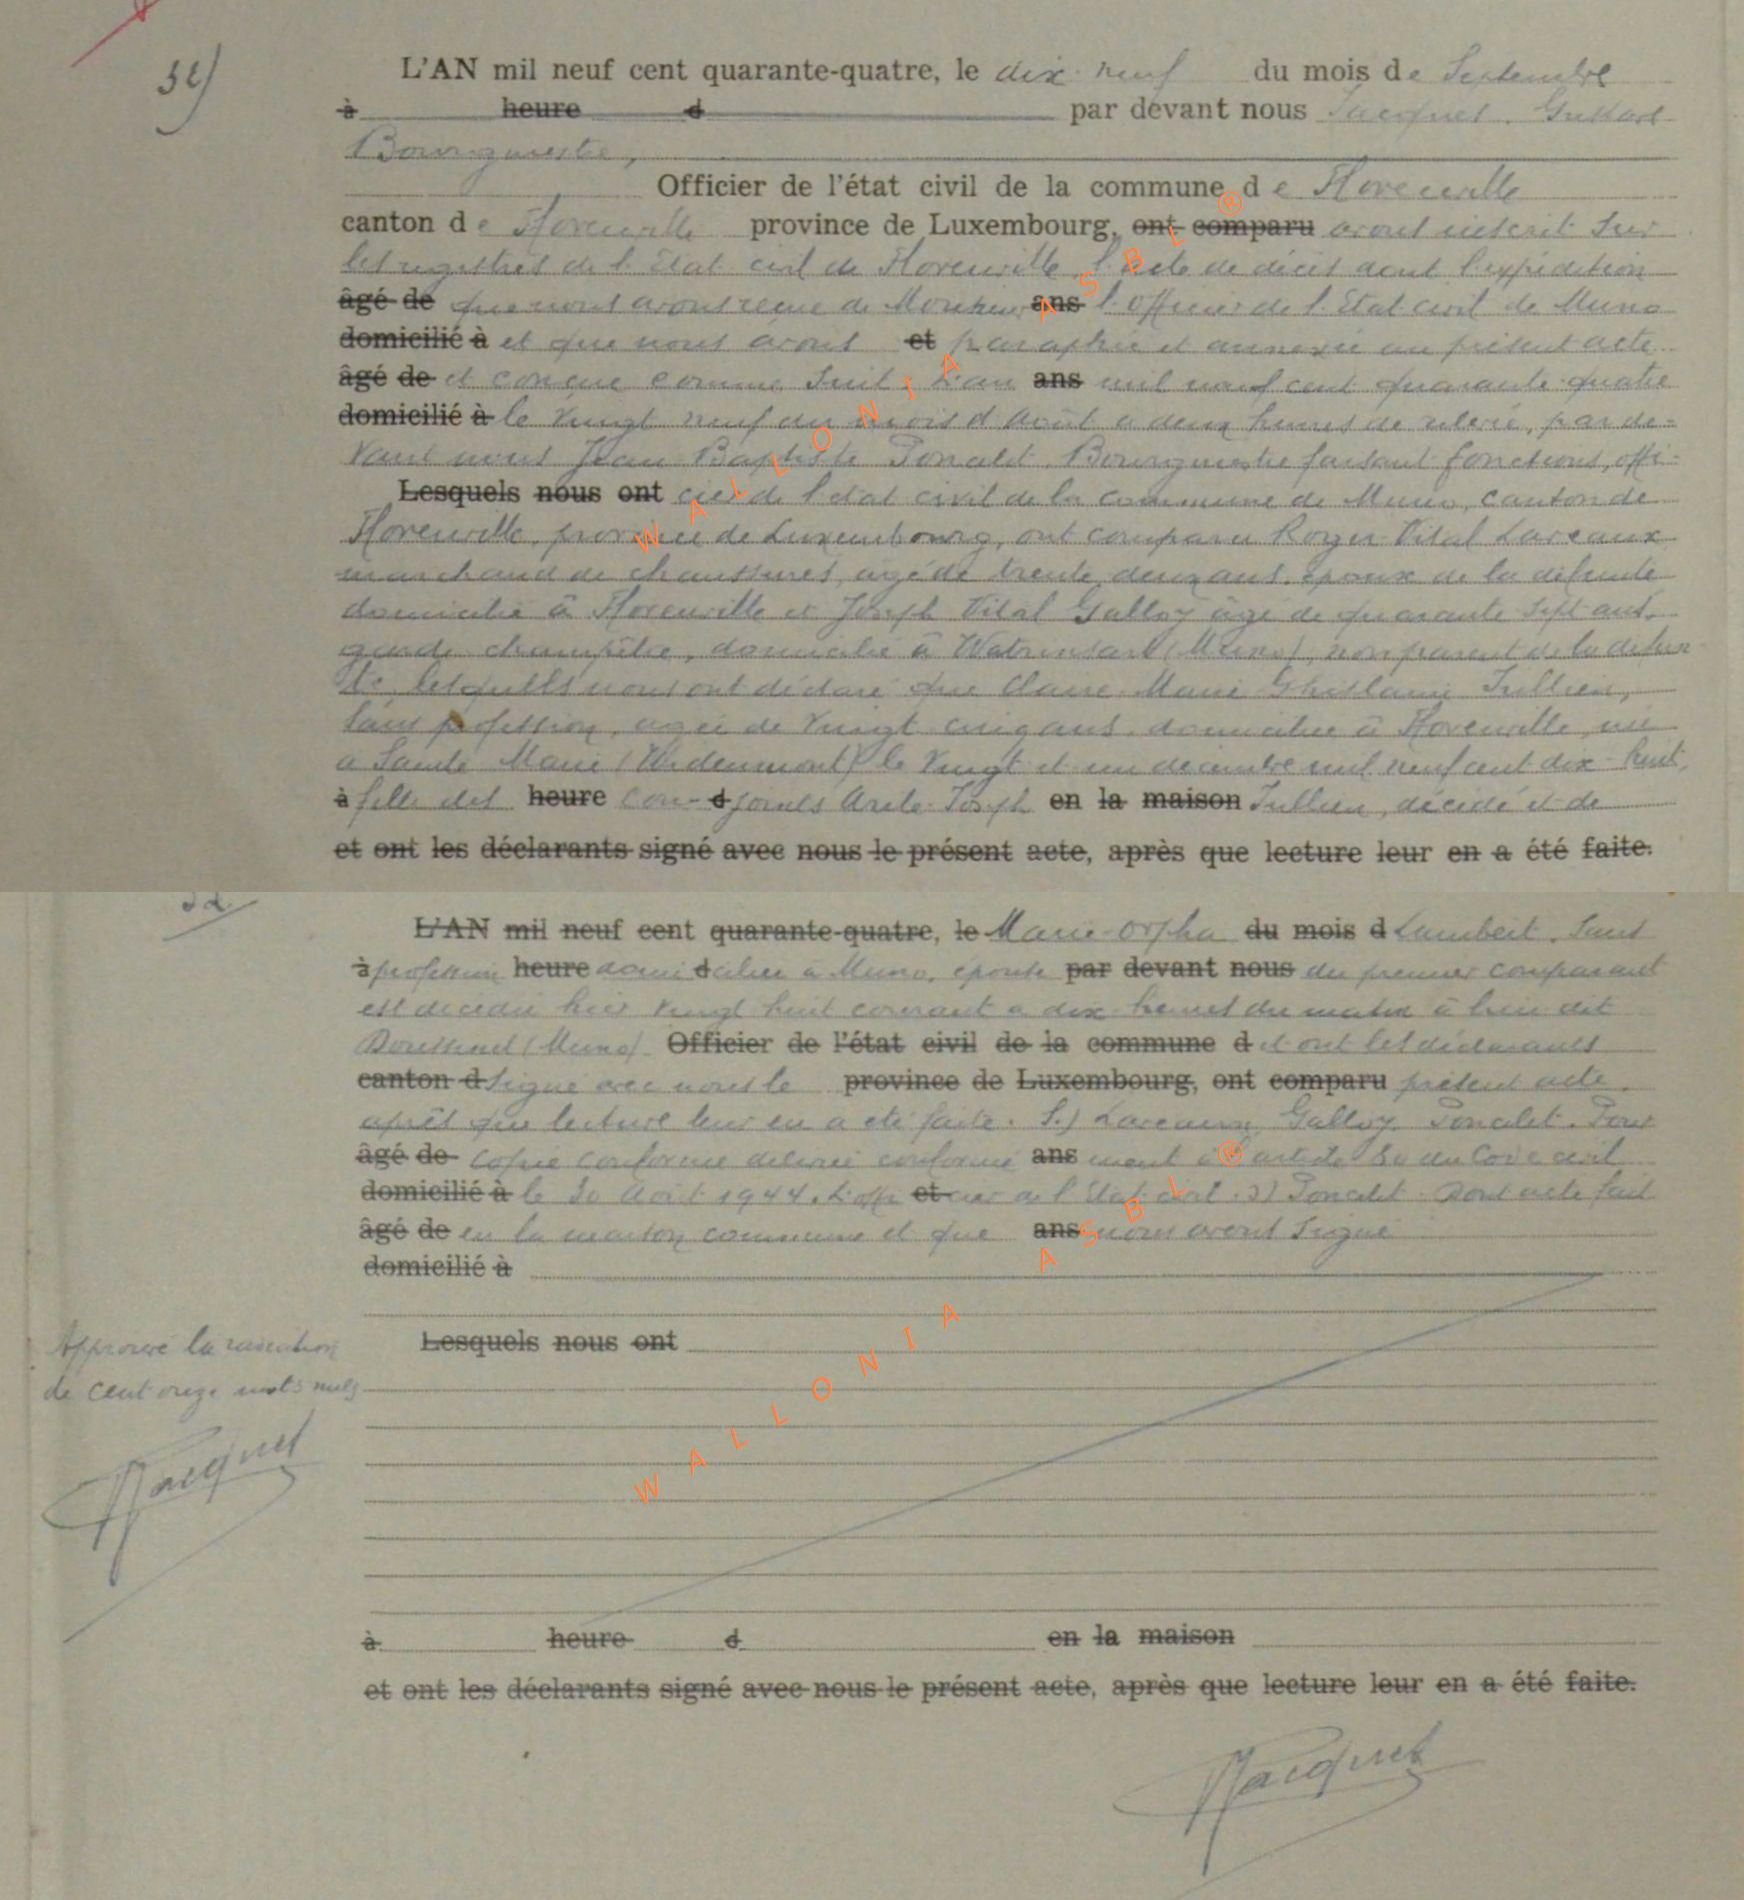 52)
L'AN mil neuf cent quarante-quatre, le dix-neuf du mois de Septembre
à heure d par devant nous Jacquet, Gustave
Bourgmestre,
Officier de l'état civil de la commune de Florenville
canton de Florenville province de Luxembourg, ont comparu avons inscrit sur
les registres de l'Etat civil de Florenville, l'acte de décès dont l'expédition
âgé de que nous avons reçue de Monsieur ans l'officier de l'Etat civil de Muno
domicilié à et que nous avons et paraphée et annexée au présent acte
âgé de et conçue comme suit : L'an ans mil neuf cent quarante-quatre
domicilié à le vingt neuf du mois d'Août à deux heures de relevée, par de-
vant nous Jean Baptiste Ponalet, Bourgmestre faisant fonctions, offi-
Lesquels nous ont cier de l'état civil de la commune de Muno, canton de
Florenville, province de Luxembourg, ont comparu Roger Vital Lareaux
marchand de chaussures, âgé de trente deux ans, époux de la défunte
domicilié à Florenville et Joseph Vital Galloy âgé de quarante sept ans,
garde champêtre, domicilié à Watrinsart (Muno), non parent de la défun
te, lesquels nous ont déclaré que Claire Marie Ghislaine Jullien,
sans profession, agée de vingt cinq ans, domiciliée à Florenville, née
à Sainte Marie (Wideumont) le vingt et un décembre mil neuf cent dix-huit,
à fille des heure con- d joints Joseph en la maison Jullien, décédé et de
et ont les déclarants signé avec nous le présent acte, après que lecture leur en a été faite.
52
L'AN mil neuf cent quarante-quatre, le Marie-Orpha du mois d Lambert, sans
à profession heure domi d ciliée à Muno, épouse par devant nous du premier comparant
est décédée hier vingt huit courant à dix heures du matin à lieu dit
(Muno) Officier de l'état civil de la commune d et ont les déclarants
canton d signé avec nous le province de Luxembourg, ont comparu présent acte,
après que lecture leur en a été faite. S.) Lareaux, Galloy Ponalet. Pour
âgé de copie conforme délivrée conformé ans ment à l'article 80 du Code civil
domicilié à le 30 Août 1944. L'offi et cier de l'Etat civil. S) Ponalet. Dont acte fait
âgé de en la maison commune et que ans nous avons signé
domicilié à
Lesquels nous ont
Approuvé la radiation
de cent onze mots nuls
Jacquet
à heure d en la maison
et ont les déclarants signé avec nous le présent acte, après que lecture leur en a été faite.
Jacquet
WALLONIA ASBL ®
WALLONIA ASBL ®